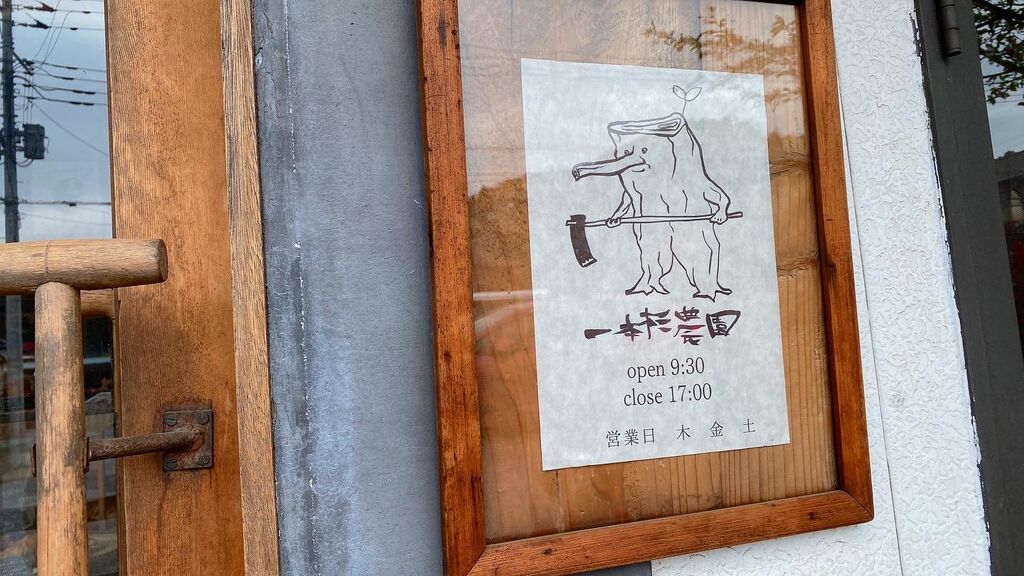 一本杉農園
open 9:30
close 17:00
営業日 木 金 土